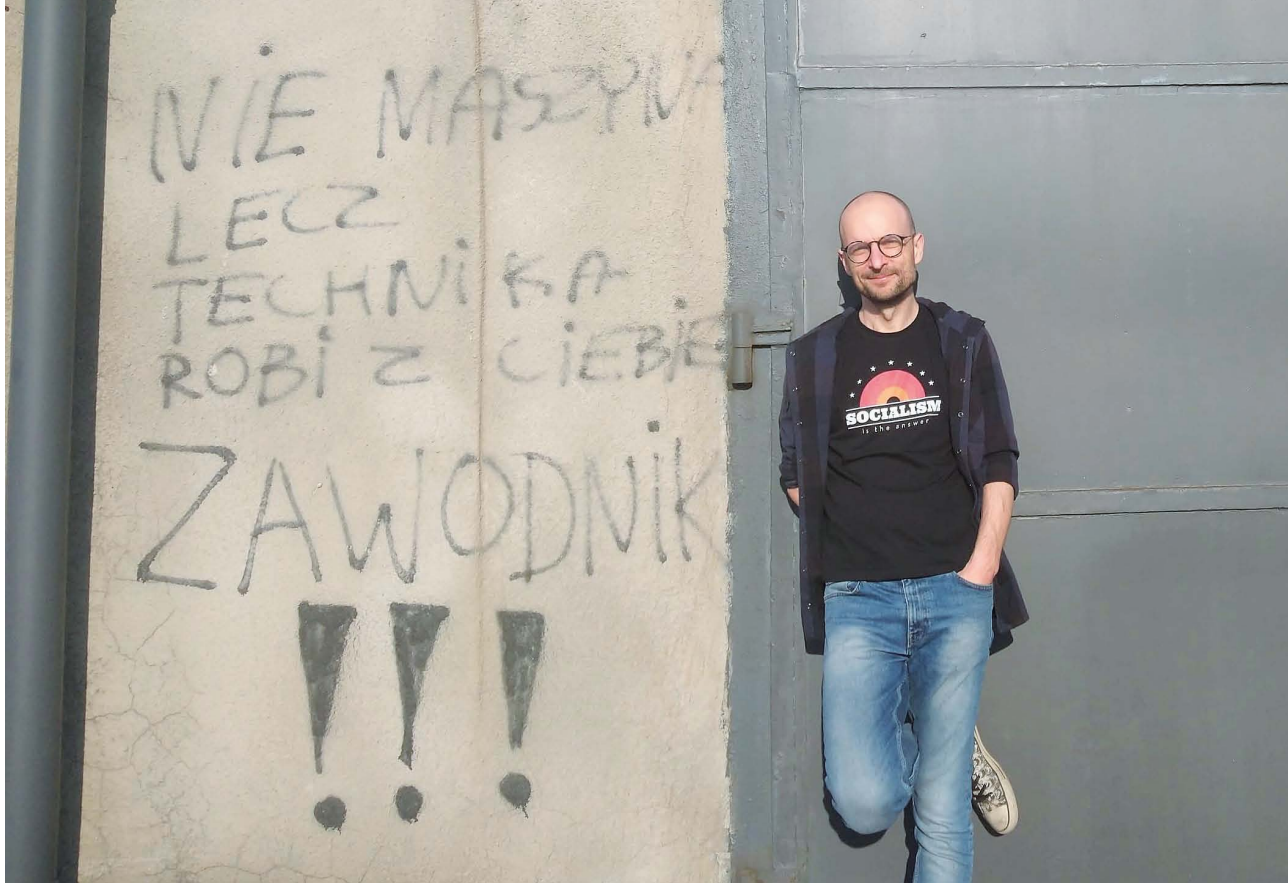 NiE MASZYNA
LECZ
TECHNiKA
ROBi Z CiEBiE
ZAWODNiK
!!!
SOCIALISM
is the answer